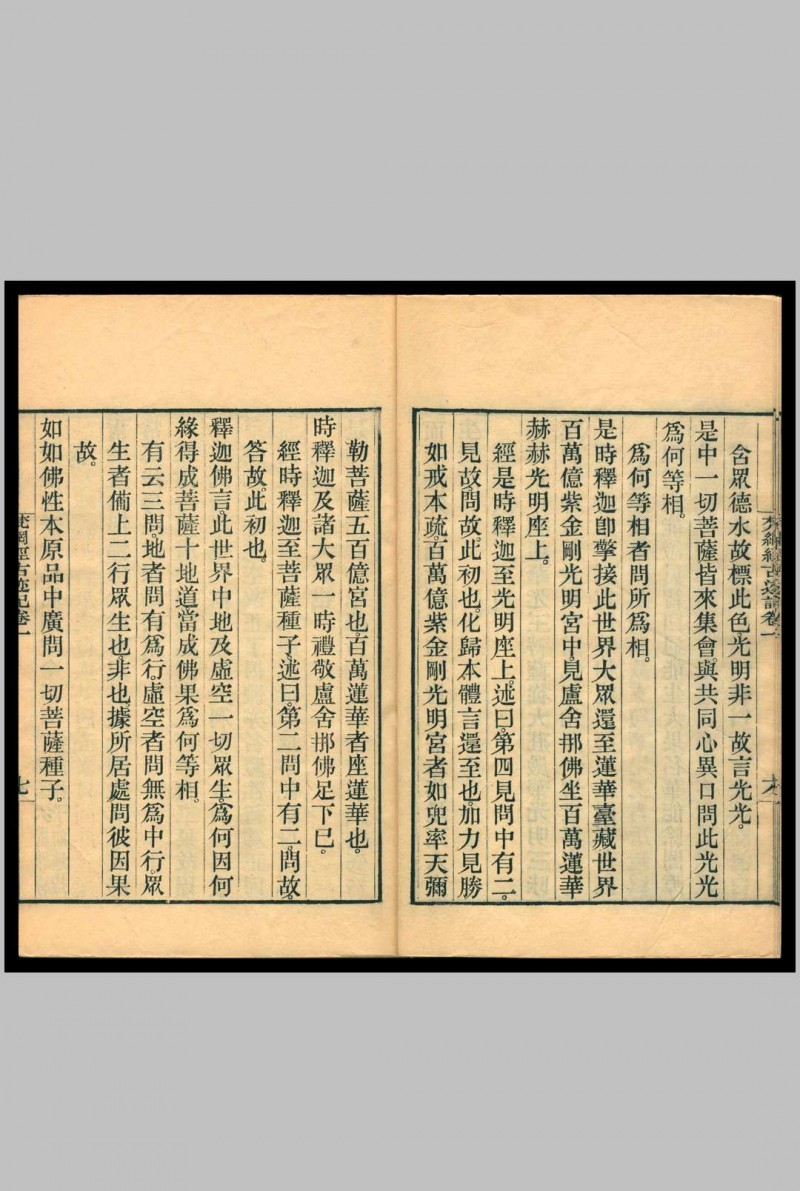 含眾德水故標此色光明非一故言光光。
是中一切菩薩皆來集會與共同心異口問此光光
爲何等相。
爲何等相者問所爲相。
是時釋迦卽擎接此世界大眾還至蓮華臺藏世界
百萬億紫金剛光明宮中見盧舍那佛坐百萬蓮華
赫赫光明座上。
經是時釋迦至光明座上。述曰。第四見問中有二。
見故。問故。此初也。化歸本體言還至也。加力見勝
如戒本疏。百萬億紫金剛光明宮者如兜率天彌
勒菩薩五百億宮也。百萬蓮華者座蓮華也。
時釋迦及諸大眾一時禮敬盧舍那佛足下已。
經時釋迦至菩薩種子。述曰。第二問中有二。問故。
答故。此初也。
釋迦佛言。此世界中地及虛空一切眾生。爲何因何
緣得成菩薩十地道當成佛果爲何等相。
有云三問。地者問有爲行。虛空者問無爲中行。眾
生者僃上二行眾生也。非也。據所居處問彼因果
故。
如如佛性本原品中廣問一切菩薩種子。
梵網經古迹記卷一
七